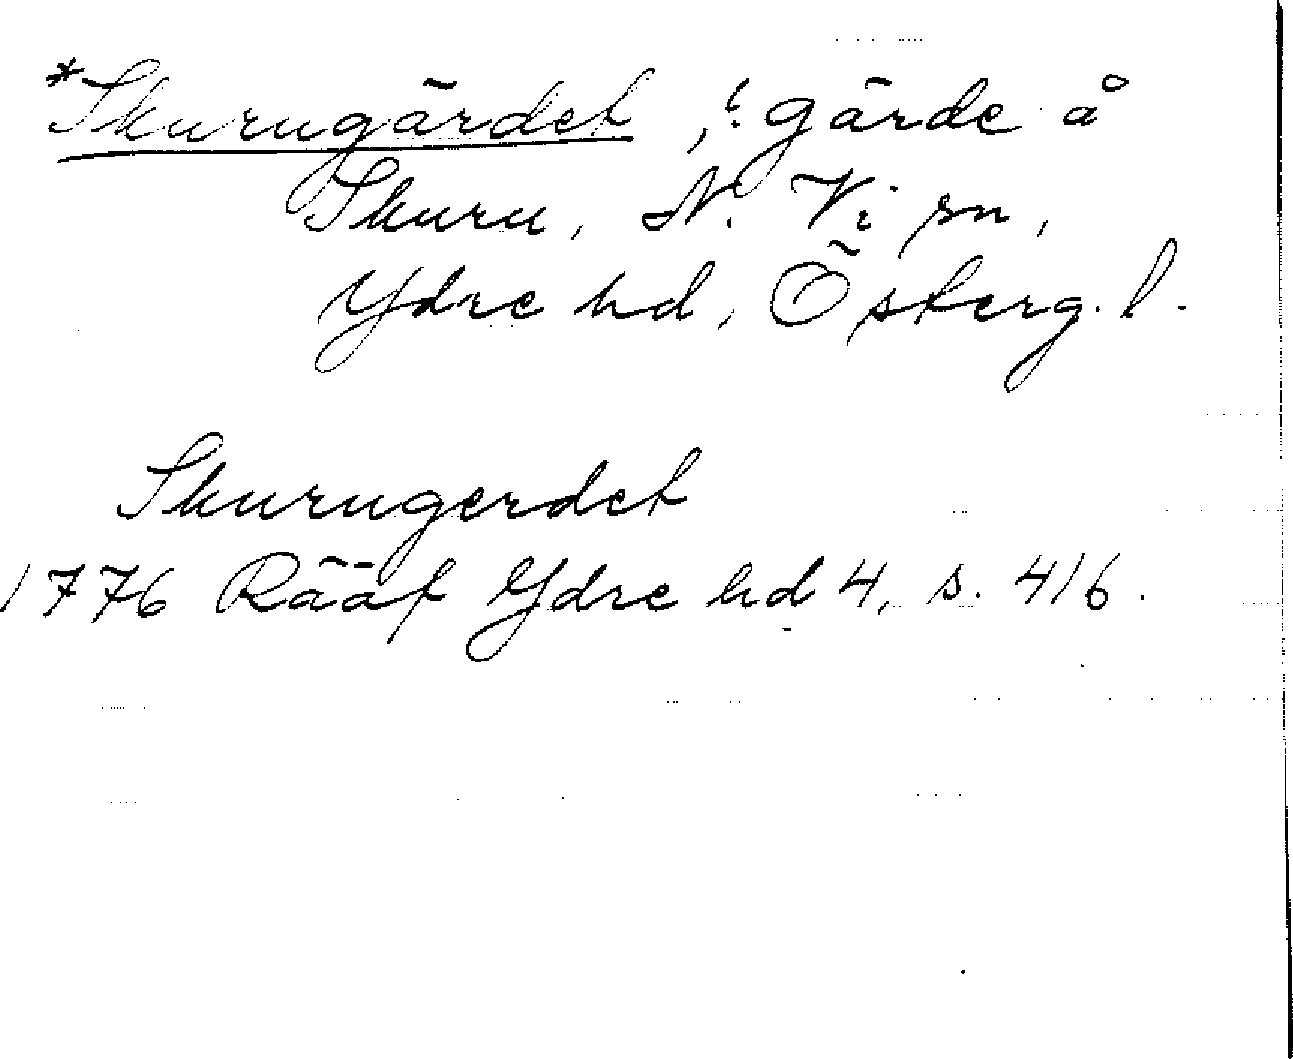 *Skurugärdet, : gärde å
Skuru, N. Vi sn,
Ydre hd, Österg. l.
Skurugerdet
1776 Rääf Ydre hd 4, s. 416.